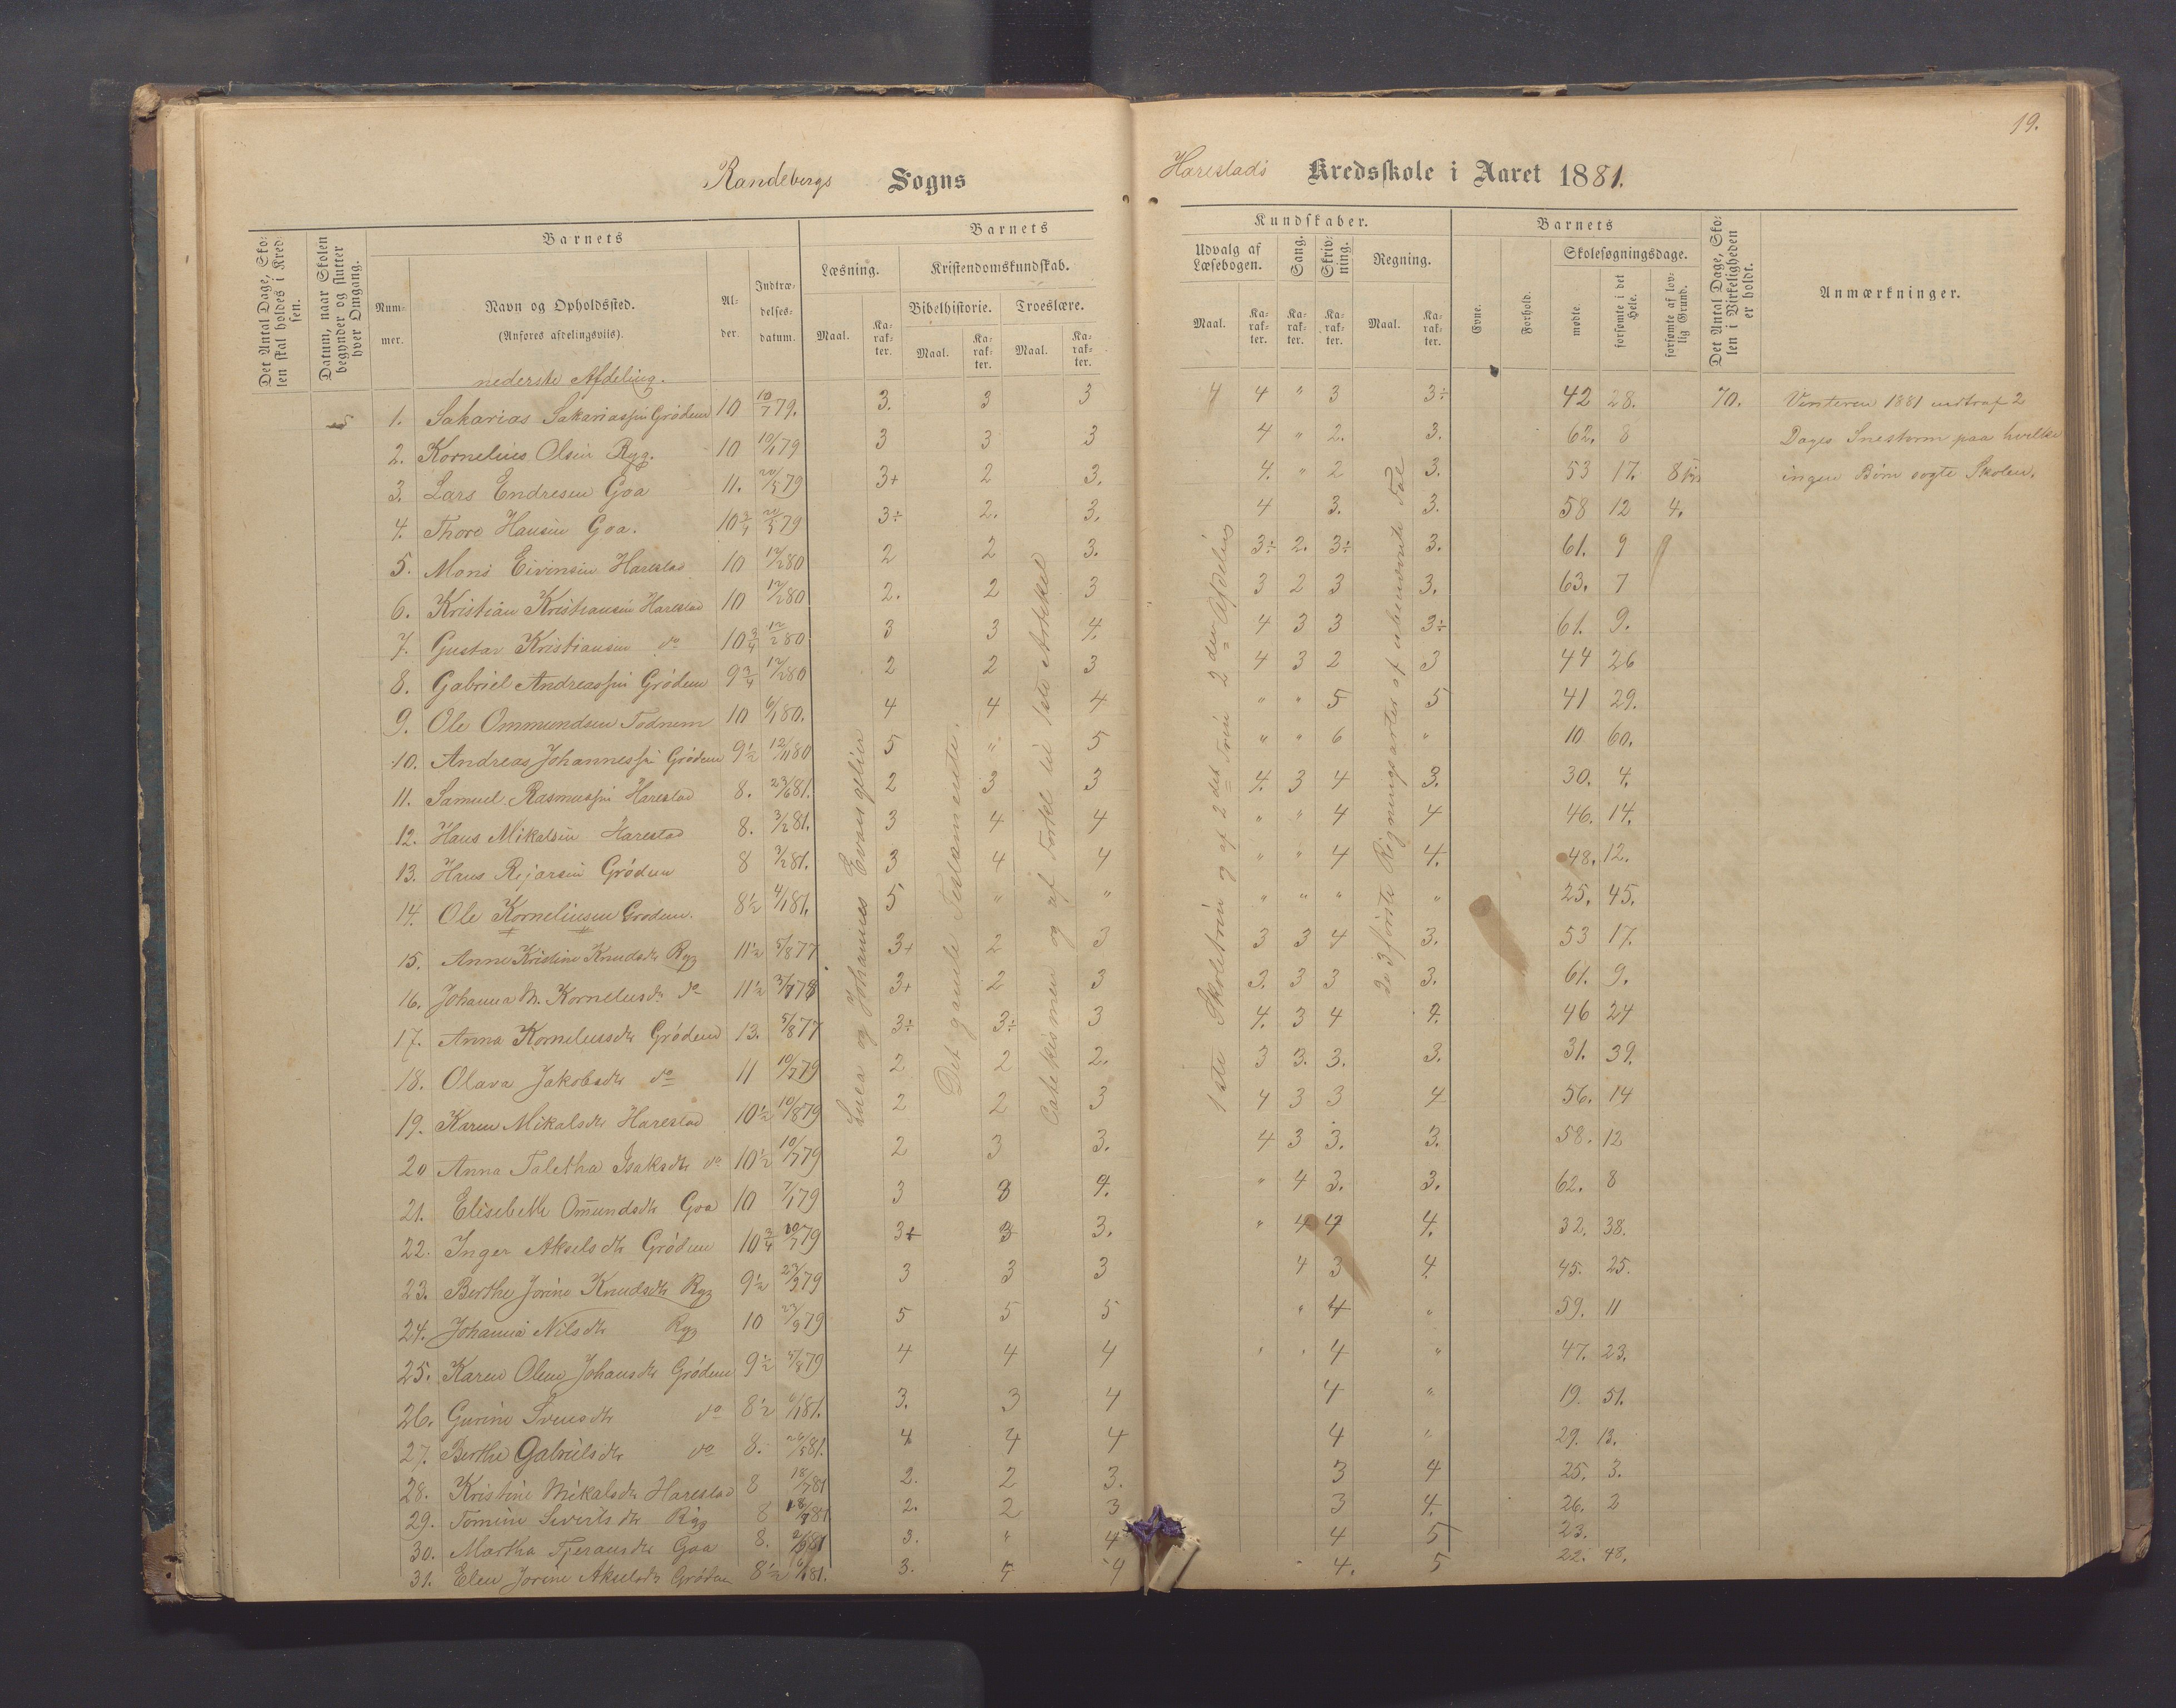 19.
Randebergs Sogns
Harestads Kredsskole i Aaret 1881.
Det Antal Dage, Skolen skal holdes i Kredsen.
Datum, naar Skolen begynder og slutter hver Omgang.
Barnets
Nummer.
Navn og Opholdssted.
(Anføres afdelingsviis).
Alder.
Indtrædelsesdatum.
Barnets
Læsning.
Kristendomskundskab.
Bibelhistorie. Troeslære.
Maal. Karakter. Maal. Karakter. Maal. Karakter.
Kundskaber.
Udvalg af Læsebogen. Sang. Skrivning. Regning.
Maal. Karakter. Karakter. Karakter. Maal. Karakter.
Barnets
Evne. Forhold.
Skolesøgningsdage.
mødte. forsømte i det Hele. forsømte af lovlig Grund.
Det Antal Dage, Skolen i Virkeligheden er holdt.
Anmærkninger.
nederste Afdeling.
1. Sakarias Sakariassen Grødem 10 10/7 79. 3. 3 3 4 4 " 3 3÷ 42 28. 70. Vinteren 1881 indtraf 2
2. Kornelius Olsen Ryg. 10 10/1 79 3 3 3 4 " 2. 3. 62. 8 Dages Snestorm paa hvilke
3. Lars Endresen Goa 11. 20/5 79 3+ 2 3. 4. " 2 3. 53 17. 8 ingen Børn søgte Skolen.
4. Thore Hansen Goa. 10 3/4 20/5 79 3÷ 2. 3. 4 3. 3. 58 12 4.
5. Mons Eivinsen Harestad 10 12/2 80 2 2 3. 3÷ 2. 3÷ 3. 61. 9 9
6. Kristian Kristiansen Harestad 10 12/2 80 2. 2 3 3 2 3 3. 63. 7
7. Gustav Kristiansen do 10 3/4 12/2 80 3 3 4. 4 3 3 3÷ 61. 9.
8. Gabriel Andreassen Grødem 9 3/4 12/2 80 2 2 3 4 3 2 3 44 26
9. Ole Ommundsen Todnem 10 6/1 80. 4 4 4 " " 5 5 41 29.
10. Andreas Johannessen Grødem 9 1/2 12/11 80 5 " 5 " " 6 " 10 60.
11. Samuel Rasmussen Harestad 8. 23/6 81. 2 3 3 4. 3 4 3. 30. 4.
12. Hans Mikalsen Harestad 8. 3/2 81. 3 4 4 " " 4 4 46. 14.
13. Hans Rejarsen Grødem 8 3/2 81. 3 4 4 " " 4 4. 48. 12.
14. Ole Korneliusen Grødem. 8 1/2 4/1 81. 5 " " " " " " 25. 45.
15. Anne Kristine Knudsdtr Ryg 11 1/2 5/8 77 3+ 2 3 3 3 4 3. 53 17.
16. Johanna M. Kornelusdr do 11 1/2 3/7 78 3+ 2 3 3. 3 3 3. 61. 9.
17. Anna Kornelusdtr Grødem 13. 5/8 77 3÷ 3÷ 3 4. 3 4 4. 46 24
18. Olava Jakobsdtr do 11 10/7 79 2 2 2. 3 3. 3. 3. 31. 39.
19. Karen Mikalsdtr Harestad 10 1/2 10/8 79 2 2 3 4 3 3 4 56. 14
20 Anna Taletha Isaksdtr do 10 1/2 10/7 79 2 3 3. 4 3 3. 3. 58. 12
21. Elisebeth Om̄undsdtr Goa 10 7/1 79 3 3 4. " 4 3. 3. 62. 8
22. Inger Akselsdtr Grødem 10 3/4 10/7 79 3+ 3 3. " 4 4 4. 32. 38.
23. Berthe Jorine Knudsdtr Ryg 9 1/2 23/9 79 3 3 3 4 3 4. 45. 25.
24. Johanna Nilsdtr Ryg 10 23/9 79 5 5 5 " 4 " 59. 11
25. Karen Oline Johansdtr Grødem 9 1/2 5/8 79 4 4 4 " " 4 " 47. 23.
26. Gurine Svensdtr do 8 1/2 6/1 81. 3. 3 4 4 " 19. 51.
27. Berthe Gabrielsdtr do 8. 26/5 81. 4 4 4 4 " 29. 13.
28. Kristine Mikalsdtr Harestad 8 18/7 81 2. 2 3. 3 4 25. 3.
29. Tomine Sivertsdtr Ryg 8 18/7 81 2. 2 3 3 4. 26. 2
30. Martha Tjeransdtr Goa 8. 81 3. " 4 4 5 23.
31. Elen Jorine Akselsdtr Grødem 8 1/2 6/1 81. 3. 4 4 4. 5 22. 48.
Luca og Johannes Evangelier
Det gamle Testamente.
Catekismen og af Forkl til 1ste Artikel
1ste Skoletrin og af 2det Trin 2den Afdeling
de 3 første Regningsarter af ubenævnte Tal